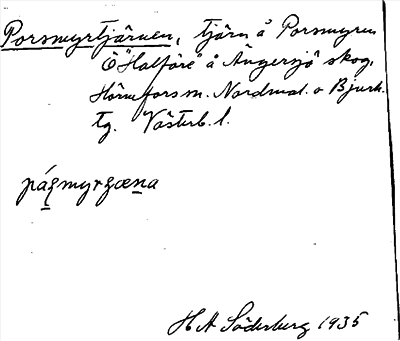 Porsmyrtjärnen, tjärn å Porsmyren
Ö "Halföre" å Ängersjö skog,
Hörnefors m. Nordmal. o Bjurh.
tg. Västerb. l.
pá̱rs̱myrʒænа
H A Söderberg 1935